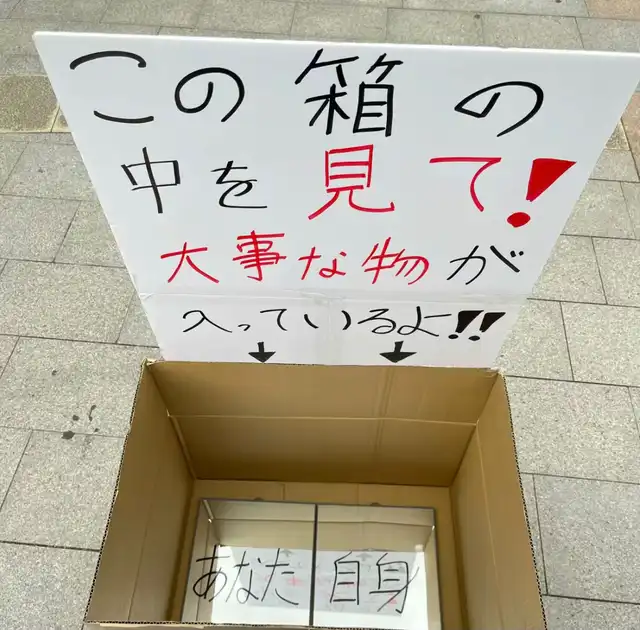 この箱の
中を見て!
大事な物が
入っているよ!!
あなた自身